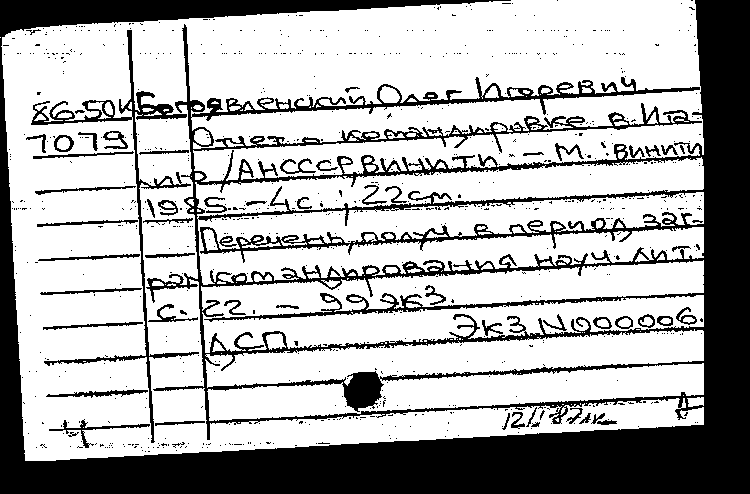 86-50к Богоявленский, Олег Игоревич.
7079 Отчет о командировке в Ита-
лию / АНСССР, ВИНИТИ. — М. : ВИНИТИ
1985. — 4с. ; 22см.
Перечень, получ. в период заг-
ран командирования науч. лит.:
с. 22. — 99 экз.
ДСП. Экз N000006.
4 12/I 87 Д